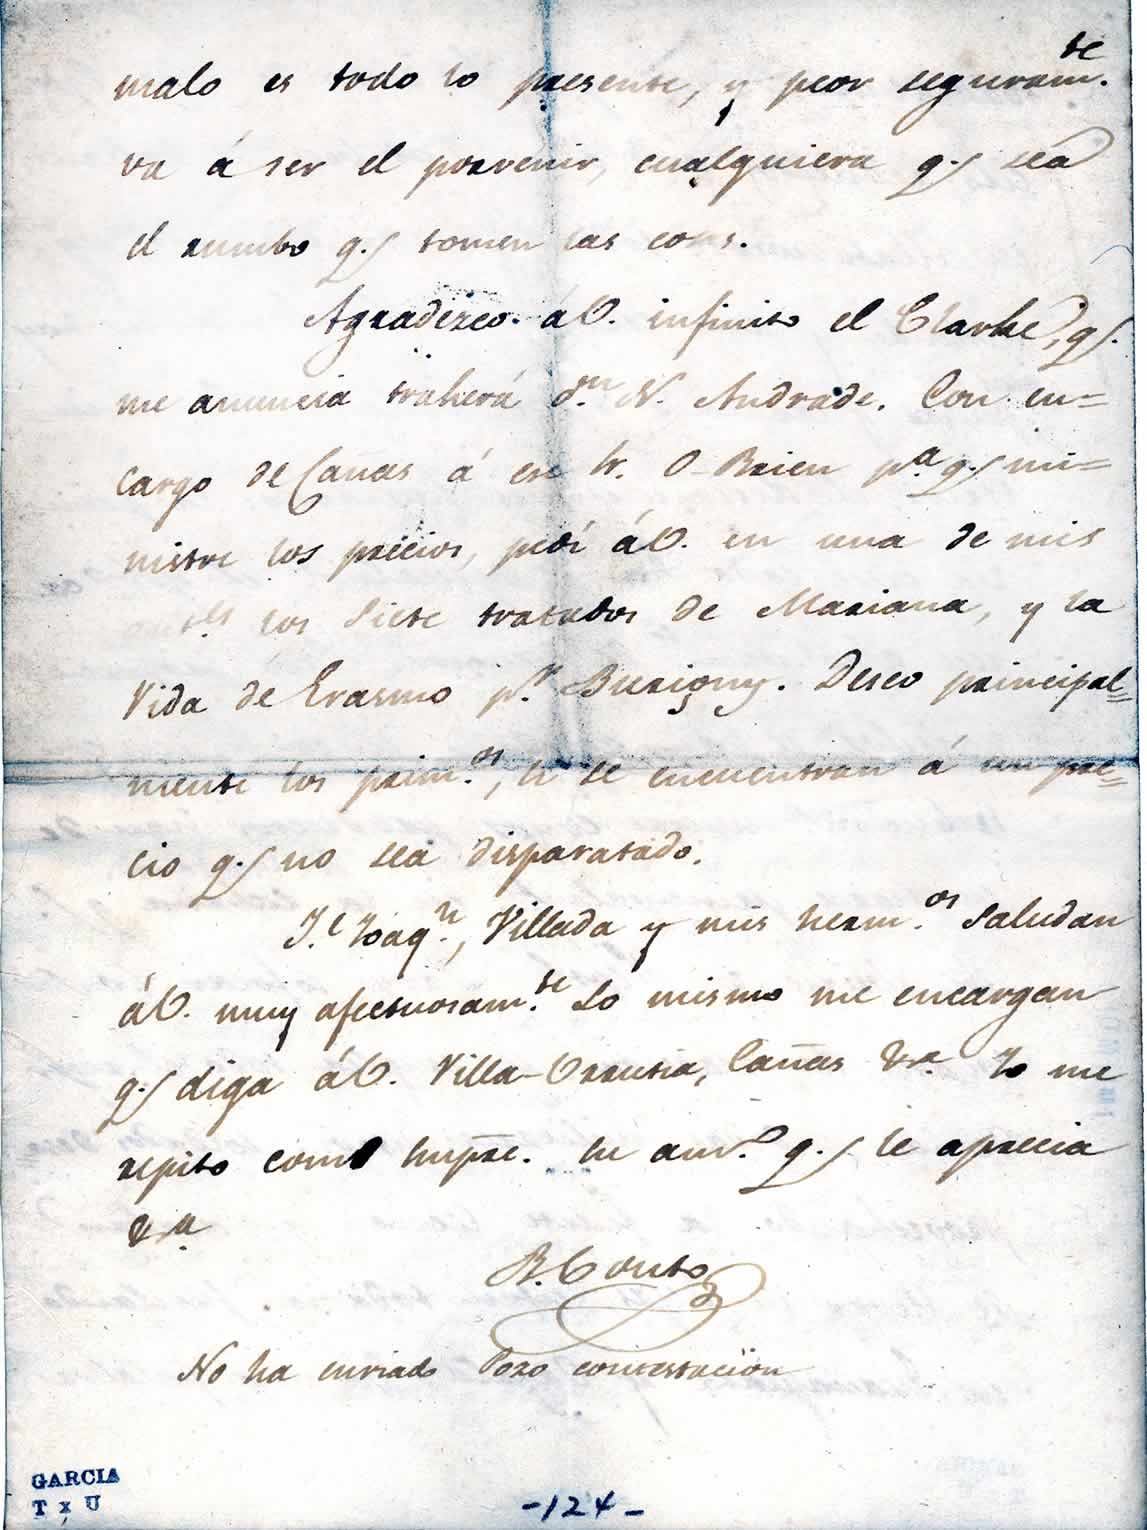 malo es todo lo presente, y peor seguram.te
va á ser el porvenir, cualquiera q.e sea
el rumbo q.e tomen las cosas.
Agradezco áV. infinito el Clarke, q.e
me anuncia traherá d.n N. Andrade. Con en=
cargo de Cañas á ese Sr. O-Brien p.a q.e mi=
nistre los precios, pedí áV. en una de mis
ant.es los Siete tratados de Mariana, y la
Vida de Erasmo p.r Burigny. Deseo principal=
mente los prim.os, si se encuentran á un pre=
cio q.e no sea disparatado.
J.e Joaq.n, Villada y mis herm.os saludan
áV. muy afectuosam.te Lo mismo me encargan
q.e diga áV. Villa-Urrutia, Cañas &.a Yo me
repito como smpre. su am.o q.e le aprecia
&.a
B. Couto
No ha enviado Pozo contestacion
GARCIA
T x U
-124-